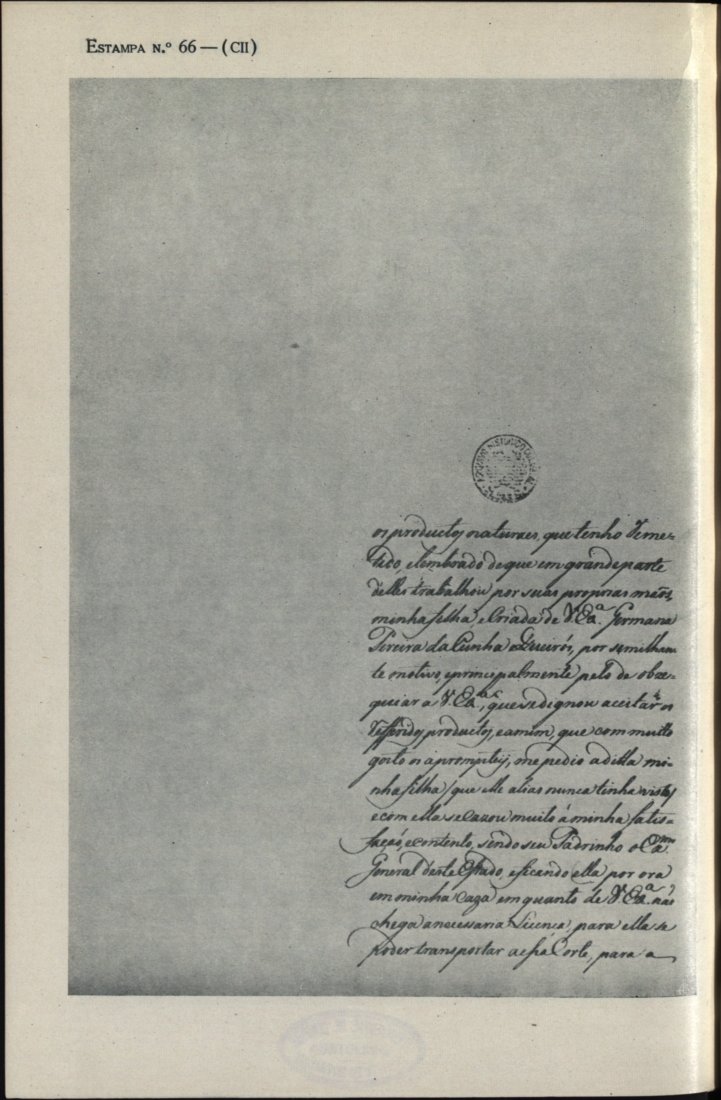 ESTAMPA N.º 66 — (CII)
os productos naturaes, que tenho Reme-
tido, e lembrado de que em grande parte
delles trabalhou por suas proprias mãos,
minha filha, e Criada de V. Exª. Germana
Pereira da Cunha e Queirós, por semilhan-
te motivo, e principalmente pelo de obze-
quiar a V. Exª., que se dignou aceitar os
Refferidos productos, e a mim, que com muito
gosto os apromptey, me pedio a ditta mi-
nha filha (que elle alias nunca tinha visto)
e com ella se cazou muito á minha satis-
fação, e contento, sendo seu Padrinho o Exmº
General deste Estado, e ficando ella por ora
em minha caza em quanto de V. Exª. não
chega a necessaria Licença, para ella se
poder transportar a essa Corte, para a